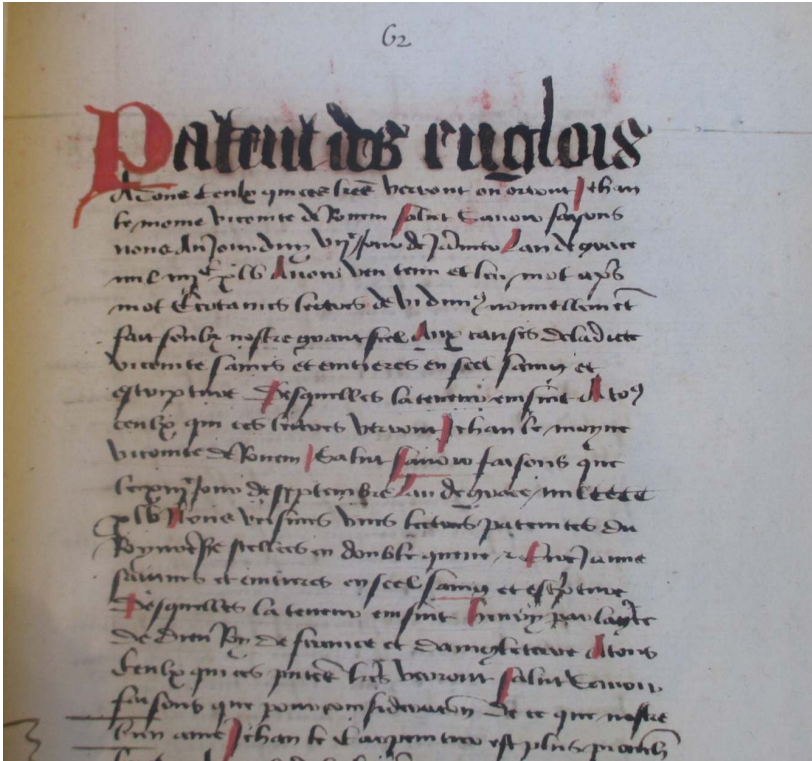 62
Patent des englois
A tous ceulx qui ces lres verront ou orront Jehan
le moine viconte de Rouen salut Savoir faisons
nous Au jourduy vije jour de Lan de grace
mil iiijc xlv Avons veu tenu et leu mot aprs
mot Certaines lectres de vidimus nouvellement
fait soubz nostre grant seel Aux causes de ladicte
viconte saines et entieres en seel saing et
escripture Desquelles la teneur ensuit A tous
ceulx qui ces lectres verront Jehan le moyne
viconte de Rouen Salut savoir faisons que
jour de septembre Lan de grace mil cccc
xlv Nous veismes unes lectres patentes du
Roy seellees en double queue et cire jaune
saines et entieres en seel saing et escripture
Desquelles la teneur ensuit henry par la grace
de dieu Roy de france et dangleterre A tous
Ceulx qui ces pntes lres verront salut Savoir
faisons que pour consideration De ce que nostre
bien ame Jehan le Carpentier est plus prochn